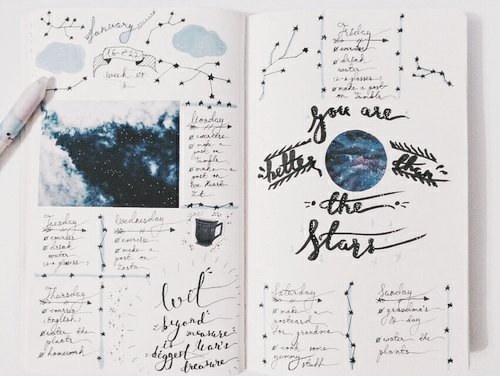 January
16 - 22
week no
3
Monday
make a
post on
Tumblr
make a
post on
We Heart
It
Tuesday
courses
drink
water
(2 glasses...)
Wednesday
courses
make a
post on
Thursday
courses
(English)
water the
plants
homework
Wit
beyond
measure
is man's
biggest
treasure
Friday
courses
drink
water
(2 glasses...)
make a post
on Tumblr
you are
better than
the
Stars
Saturday
make
postcard
for grandma
cook some
yummy
stuff
Sunday
grandma's
day
water the
plants